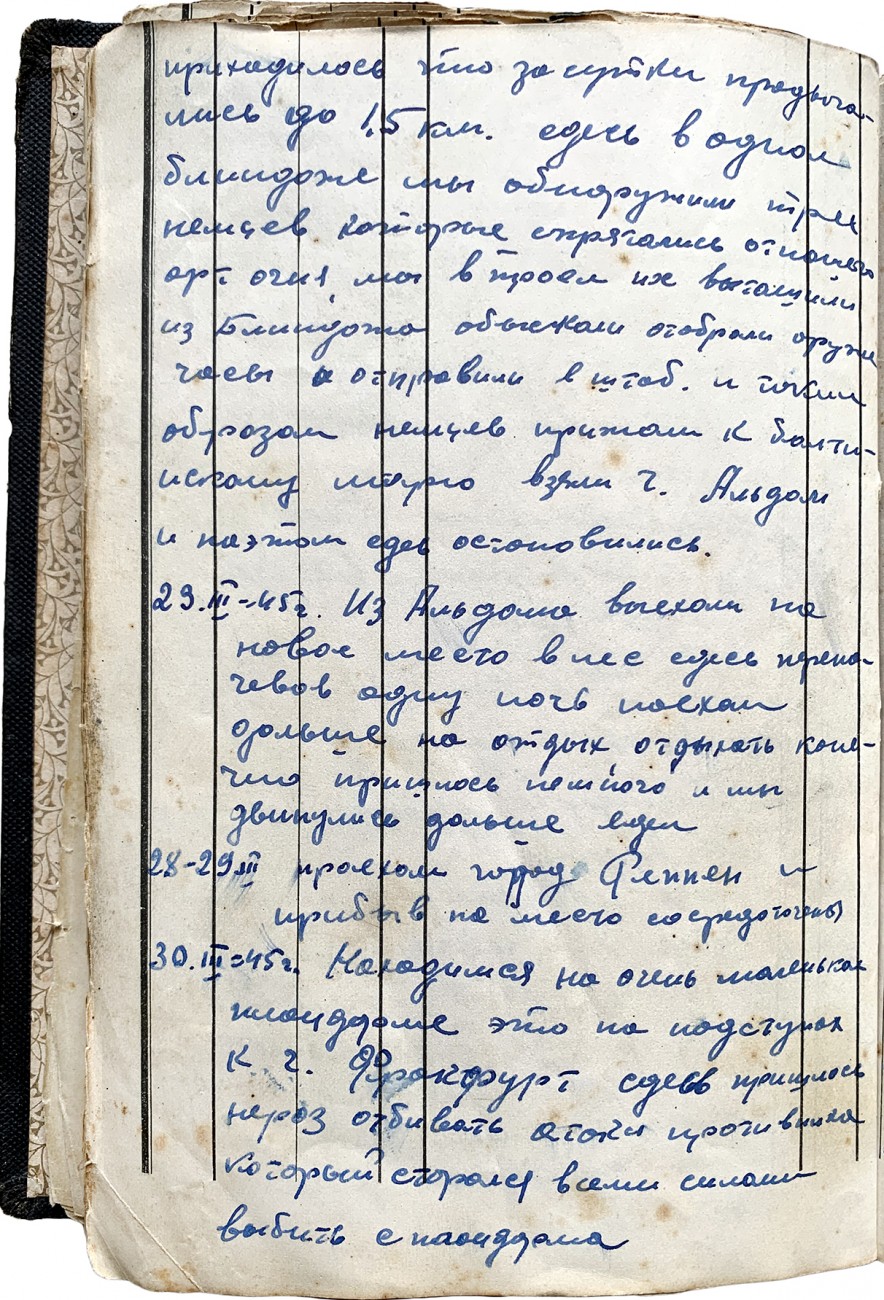 приходилось что за сутки продвига-
лись до 1,5 км. сдесь в одном
блиндаже мы обнаружили трех
немцев которые спрятались от нашего
арт огня, мы в троем их вытащили
из Блиндажа обыскали отобрали оружие
часы и отправили в штаб. и таким
образом немцев прижали к балти-
искому морю взяли г. Альдам
и на этом сдесь остановились.
23.III-45г. Из Альдама выехали на
новое место в лес сдесь перено-
чевав одну ночь поехали
дальше на отдых, отдыхать коне-
чно пришлось немного и мы
двинулись дальше
28-29 III проехали город и
прибыв на место сосредоточены
30.III-45г. Находимся на очень маленьком
плаццдарме это на подступах
к г. Франкфурт сдесь пришлось
нераз отбивать атаки противника
который старался всеми силами
выбить с плаццдарма